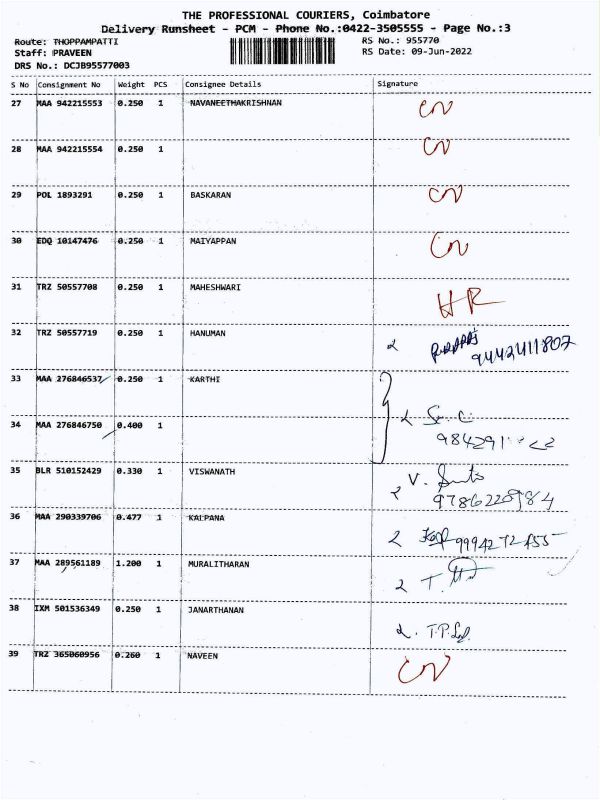 THE PROFESSIONAL COURIERS, Coimbatore
Delivery Runsheet - PCM - Phone No.:0422-3505555 - Page No.:3
Route: THOPPAMPATTI RS No.: 955770
Staff: PRAVEEN RS Date: 09-Jun-2022
DRS No.: DCJB95577003
S No Consignment No Weight PCS Consignee Details Signature
27 MAA 942215553 0.250 1 NAVANEETHAKRISHNAN CN
28 MAA 942215554 0.250 1 CN
29 POL 1893291 0.250 1 BASKARAN CN
30 EDQ 10147476 0.250 1 MAIYAPPAN CN
31 TRZ 50557708 0.250 1 MAHESHWARI HR
32 TRZ 50557719 0.250 1 HANUMAN 9442411807
33 MAA 276846537 0.250 1 KARTHI
34 MAA 276846750 0.400 1
35 BLR 510152429 0.330 1 VISWANATH V. 9786220984
36 MAA 290339706 0.477 1 KALPANA
37 MAA 289561189 1.200 1 MURALITHARAN T.
38 IXM 501536349 0.250 1 JANARTHANAN T.P.
39 TRZ 365060956 0.260 1 NAVEEN CN